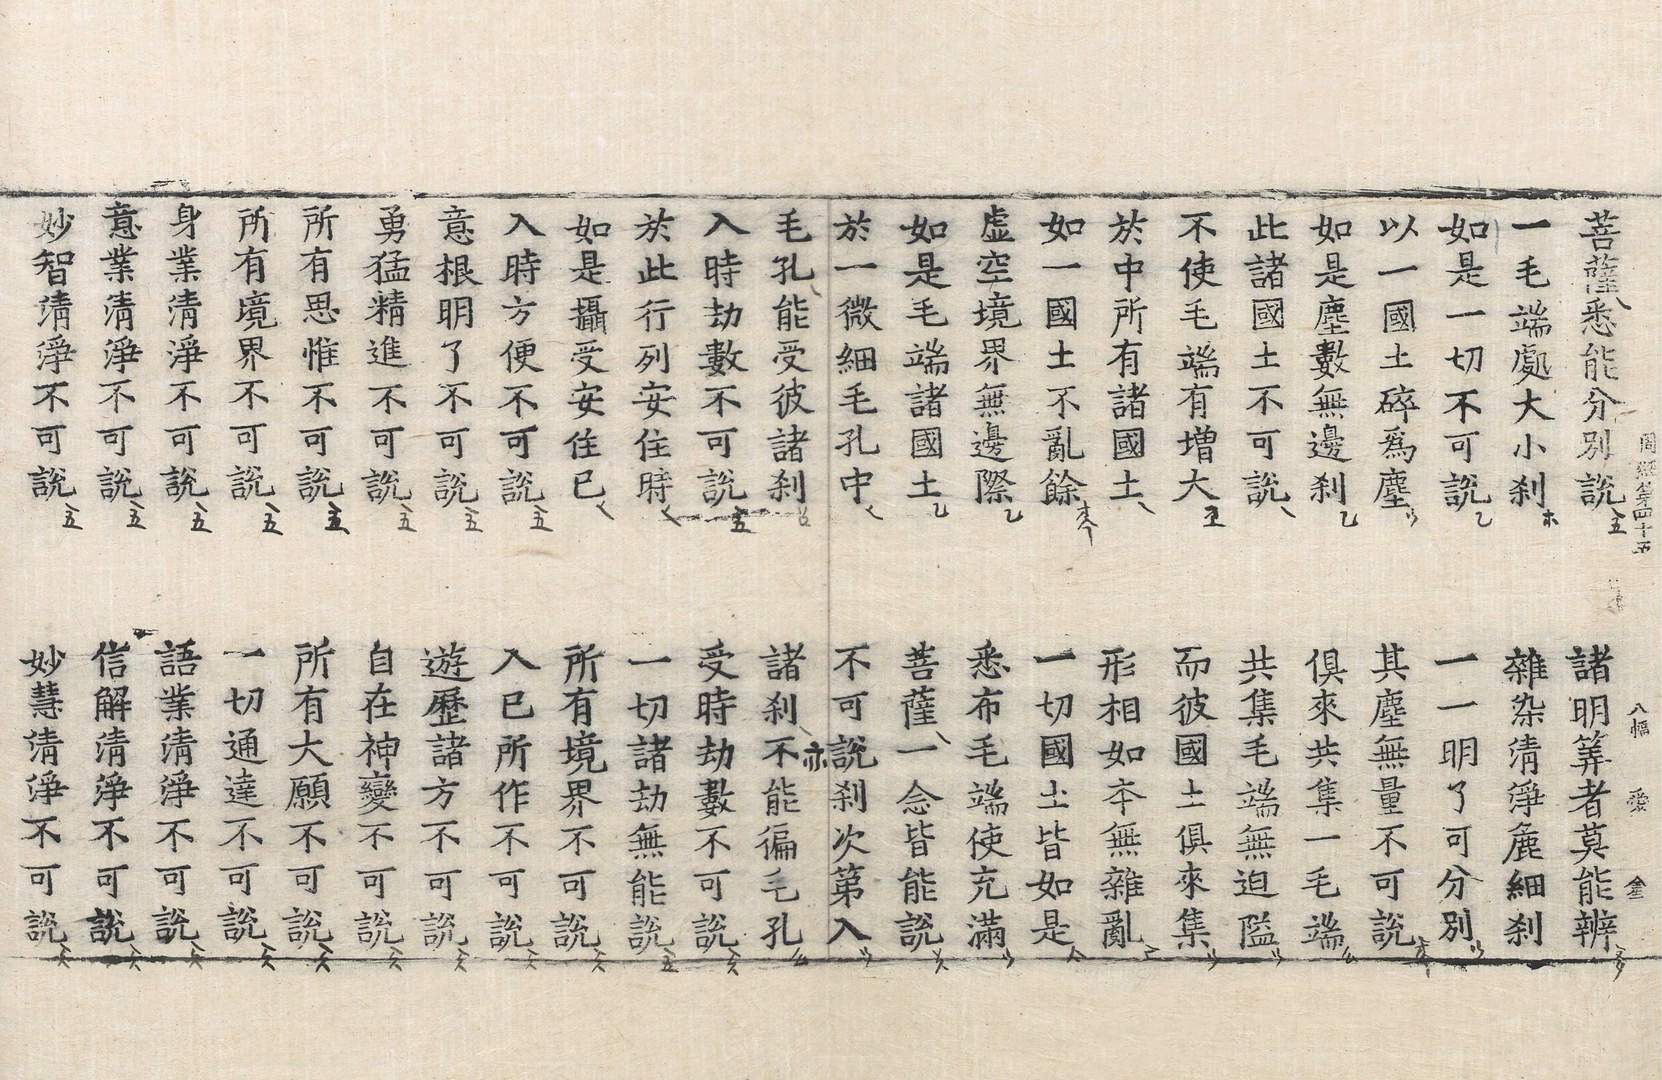 菩薩悉能分別說 諸明筭者莫能辨
一毛端處大小刹 雜染清淨麁細刹
如是一切不可說 一一明了可分別
以一國土碎爲塵 其塵無量不可說
如是塵數無邊刹 俱來共集一毛端
此諸國土不可說 共集毛端無迫隘
不使毛端有增大 而彼國土俱來集
於中所有諸國土 形相如本無雜亂
如一國土不亂餘 一切國土皆如是
虛空境界無邊際 悉布毛端使充滿
如是毛端諸國土 菩薩一念皆能說
於一微細毛孔中 不可說刹次第入
毛孔能受彼諸刹 諸刹不能徧毛孔
入時劫數不可說 受時劫數不可說
於此行列安住時 一切諸劫無能說
如是攝受安住已 所有境界不可說
入時方便不可說 入已所作不可說
意根明了不可說 遊歷諸方不可說
勇猛精進不可說 自在神變不可說
所有思惟不可說 所有大願不可說
所有境界不可說 一切通達不可說
身業清淨不可說 語業清淨不可說
意業清淨不可說 信解清淨不可說
妙智清淨不可說 妙慧清淨不可說